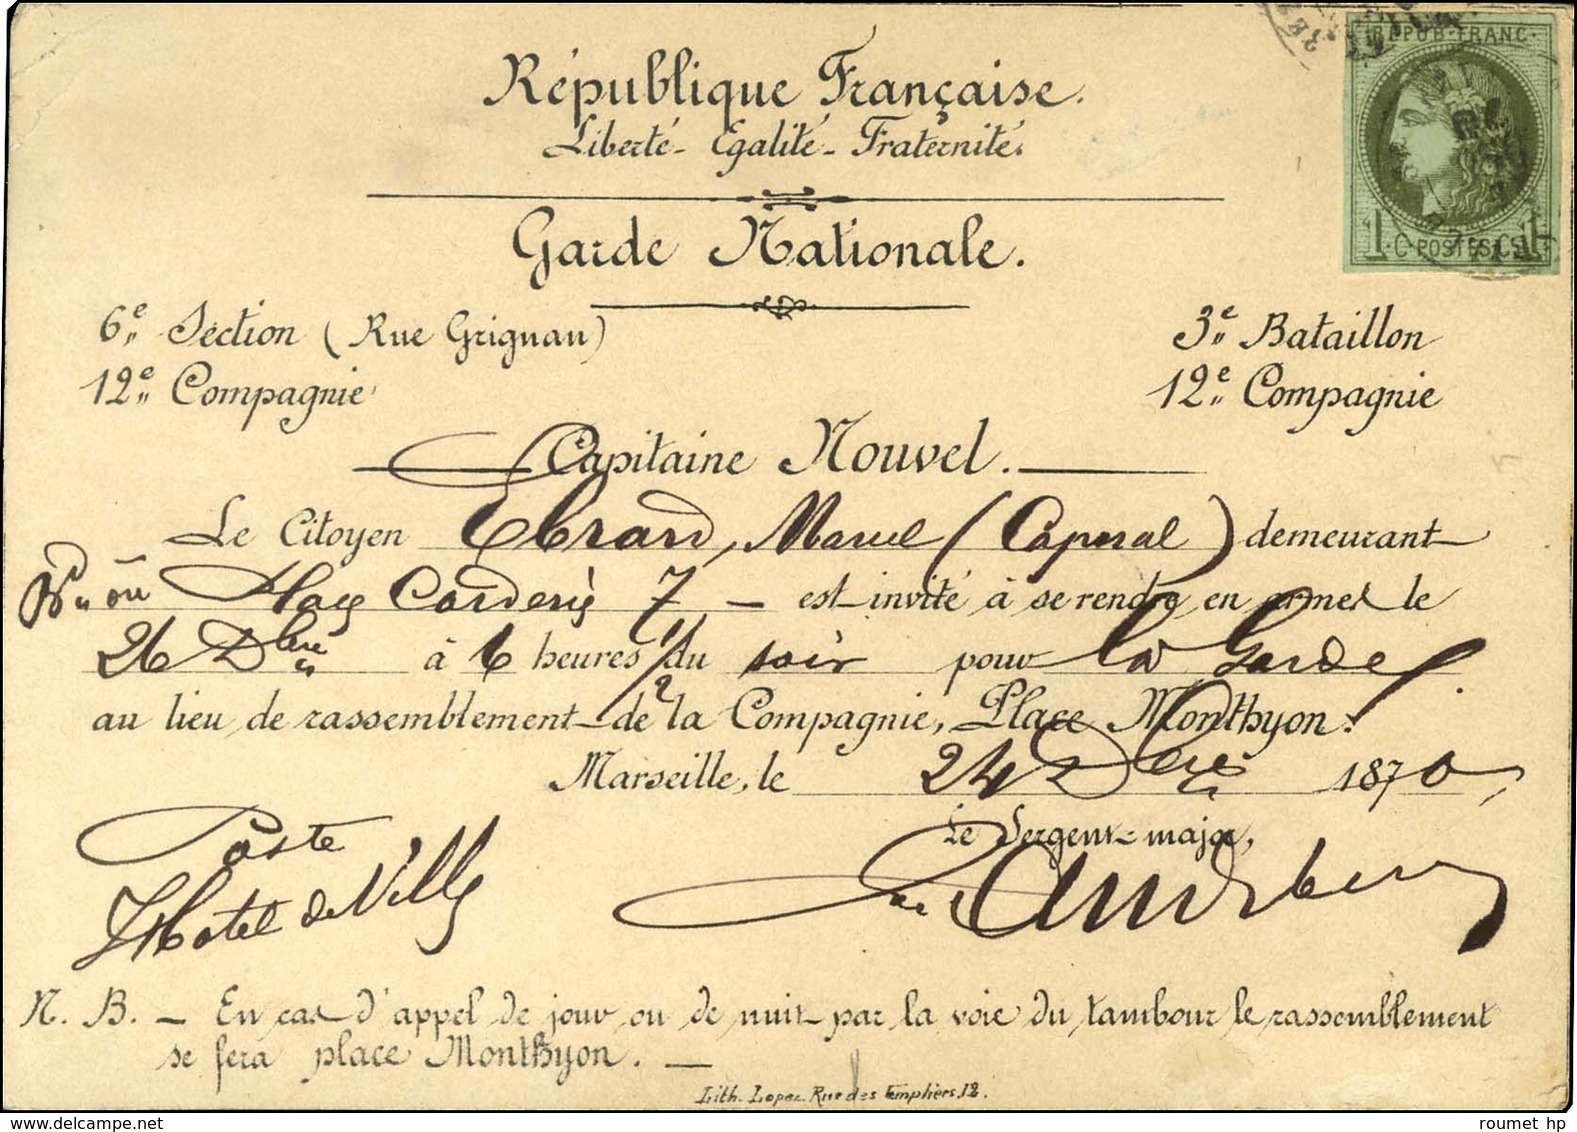 REPUB·FRANC·
République Française.
Liberté - Egalité - Fraternité.
Garde Nationale.
1·C·POSTES·C·1
6e Section (Rue Grignan)
3e Bataillon
12e Compagnie
12e Compagnie
Capitaine Nouvel.
Le Citoyen Ebrard, Marcel (Caporal) demeurant
7 est invité à se rendre en armes le
26 Xbre à 6 heures 1/2 du soir pour la Garde
au lieu de rassemblement de la Compagnie, Place Monthyon.
Marseille, le 24 Xbre 1870
Le Sergent-major,
Poste
Hotel de Ville
N. B. - En cas d'appel de jour ou de nuit par la voie du tambour le rassemblement
se fera place Monthyon.
Lith. Lopez Rue des Templiers, 12.
roumet hp